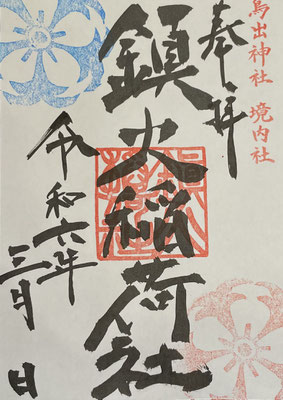 鳥出神社 境内社
奉拝
鎮火稲荷社
令和六年
三月 日